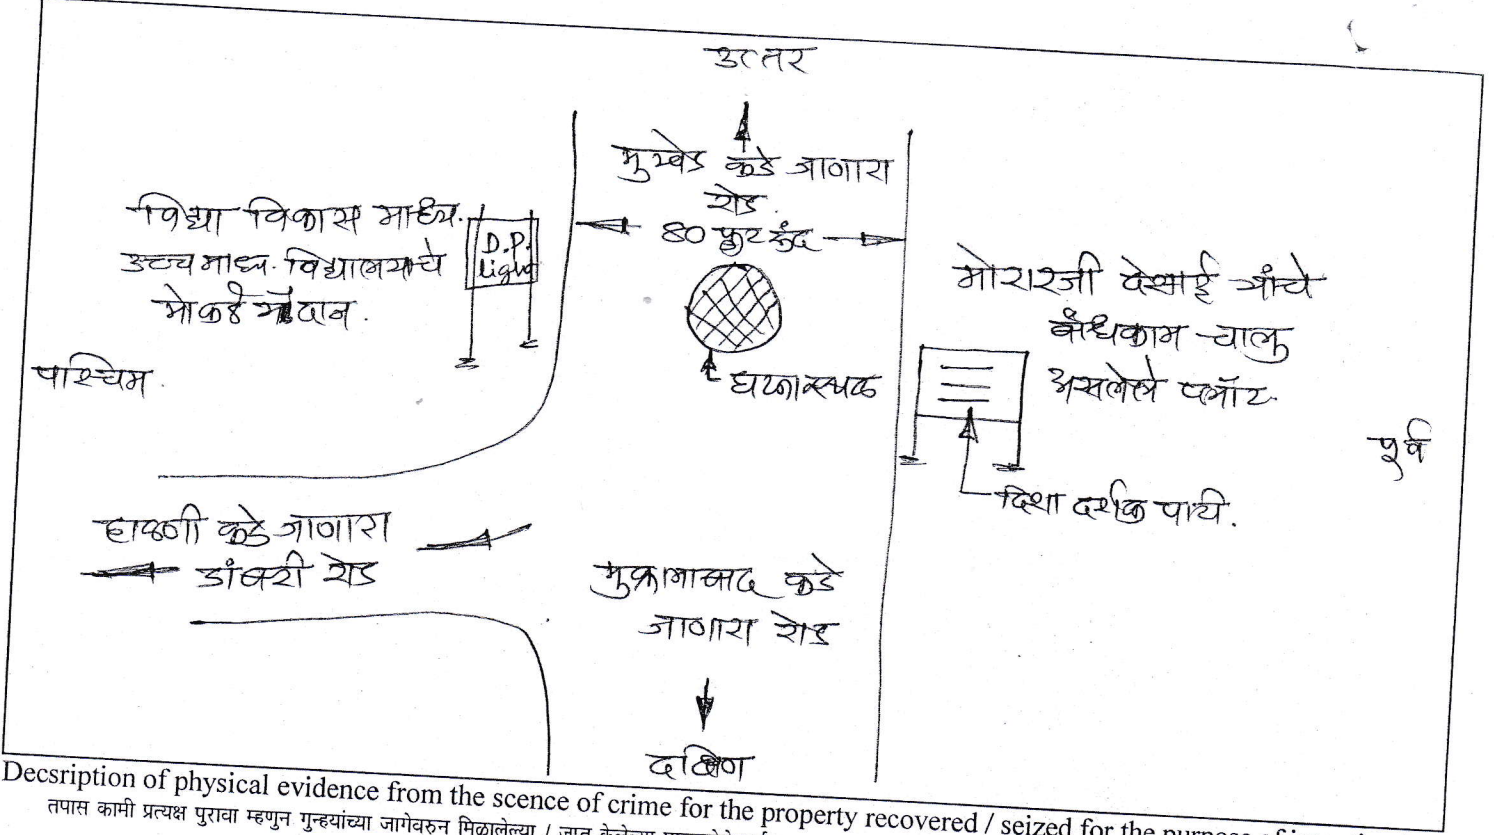 उत्तर
मुखेड कडे जाणारा
रोड.
80 फुट रुंद
विद्या विकास माध्य.
उच्च माध्य. विद्यालयाचे
मोकळे मैदान.
D.P.
light
मोरारजी देसाई यांचे
बांधकाम चालु
असलेले प्लॉट
पश्चिम.
घटनास्थळ
पूर्व
दिशा दर्शक पाटी.
हाळणी कडे जाणारा
डांबरी रोड
मुक्रामाबाद कडे
जाणारा रोड
दक्षिण
Decsription of physical evidence from the scence of crime for the property recovered / seized for the purpose of
तपास कामी प्रत्यक्ष पुरावा म्हणुन गुन्हयांच्या जागेवरुन मिळालेल्या /